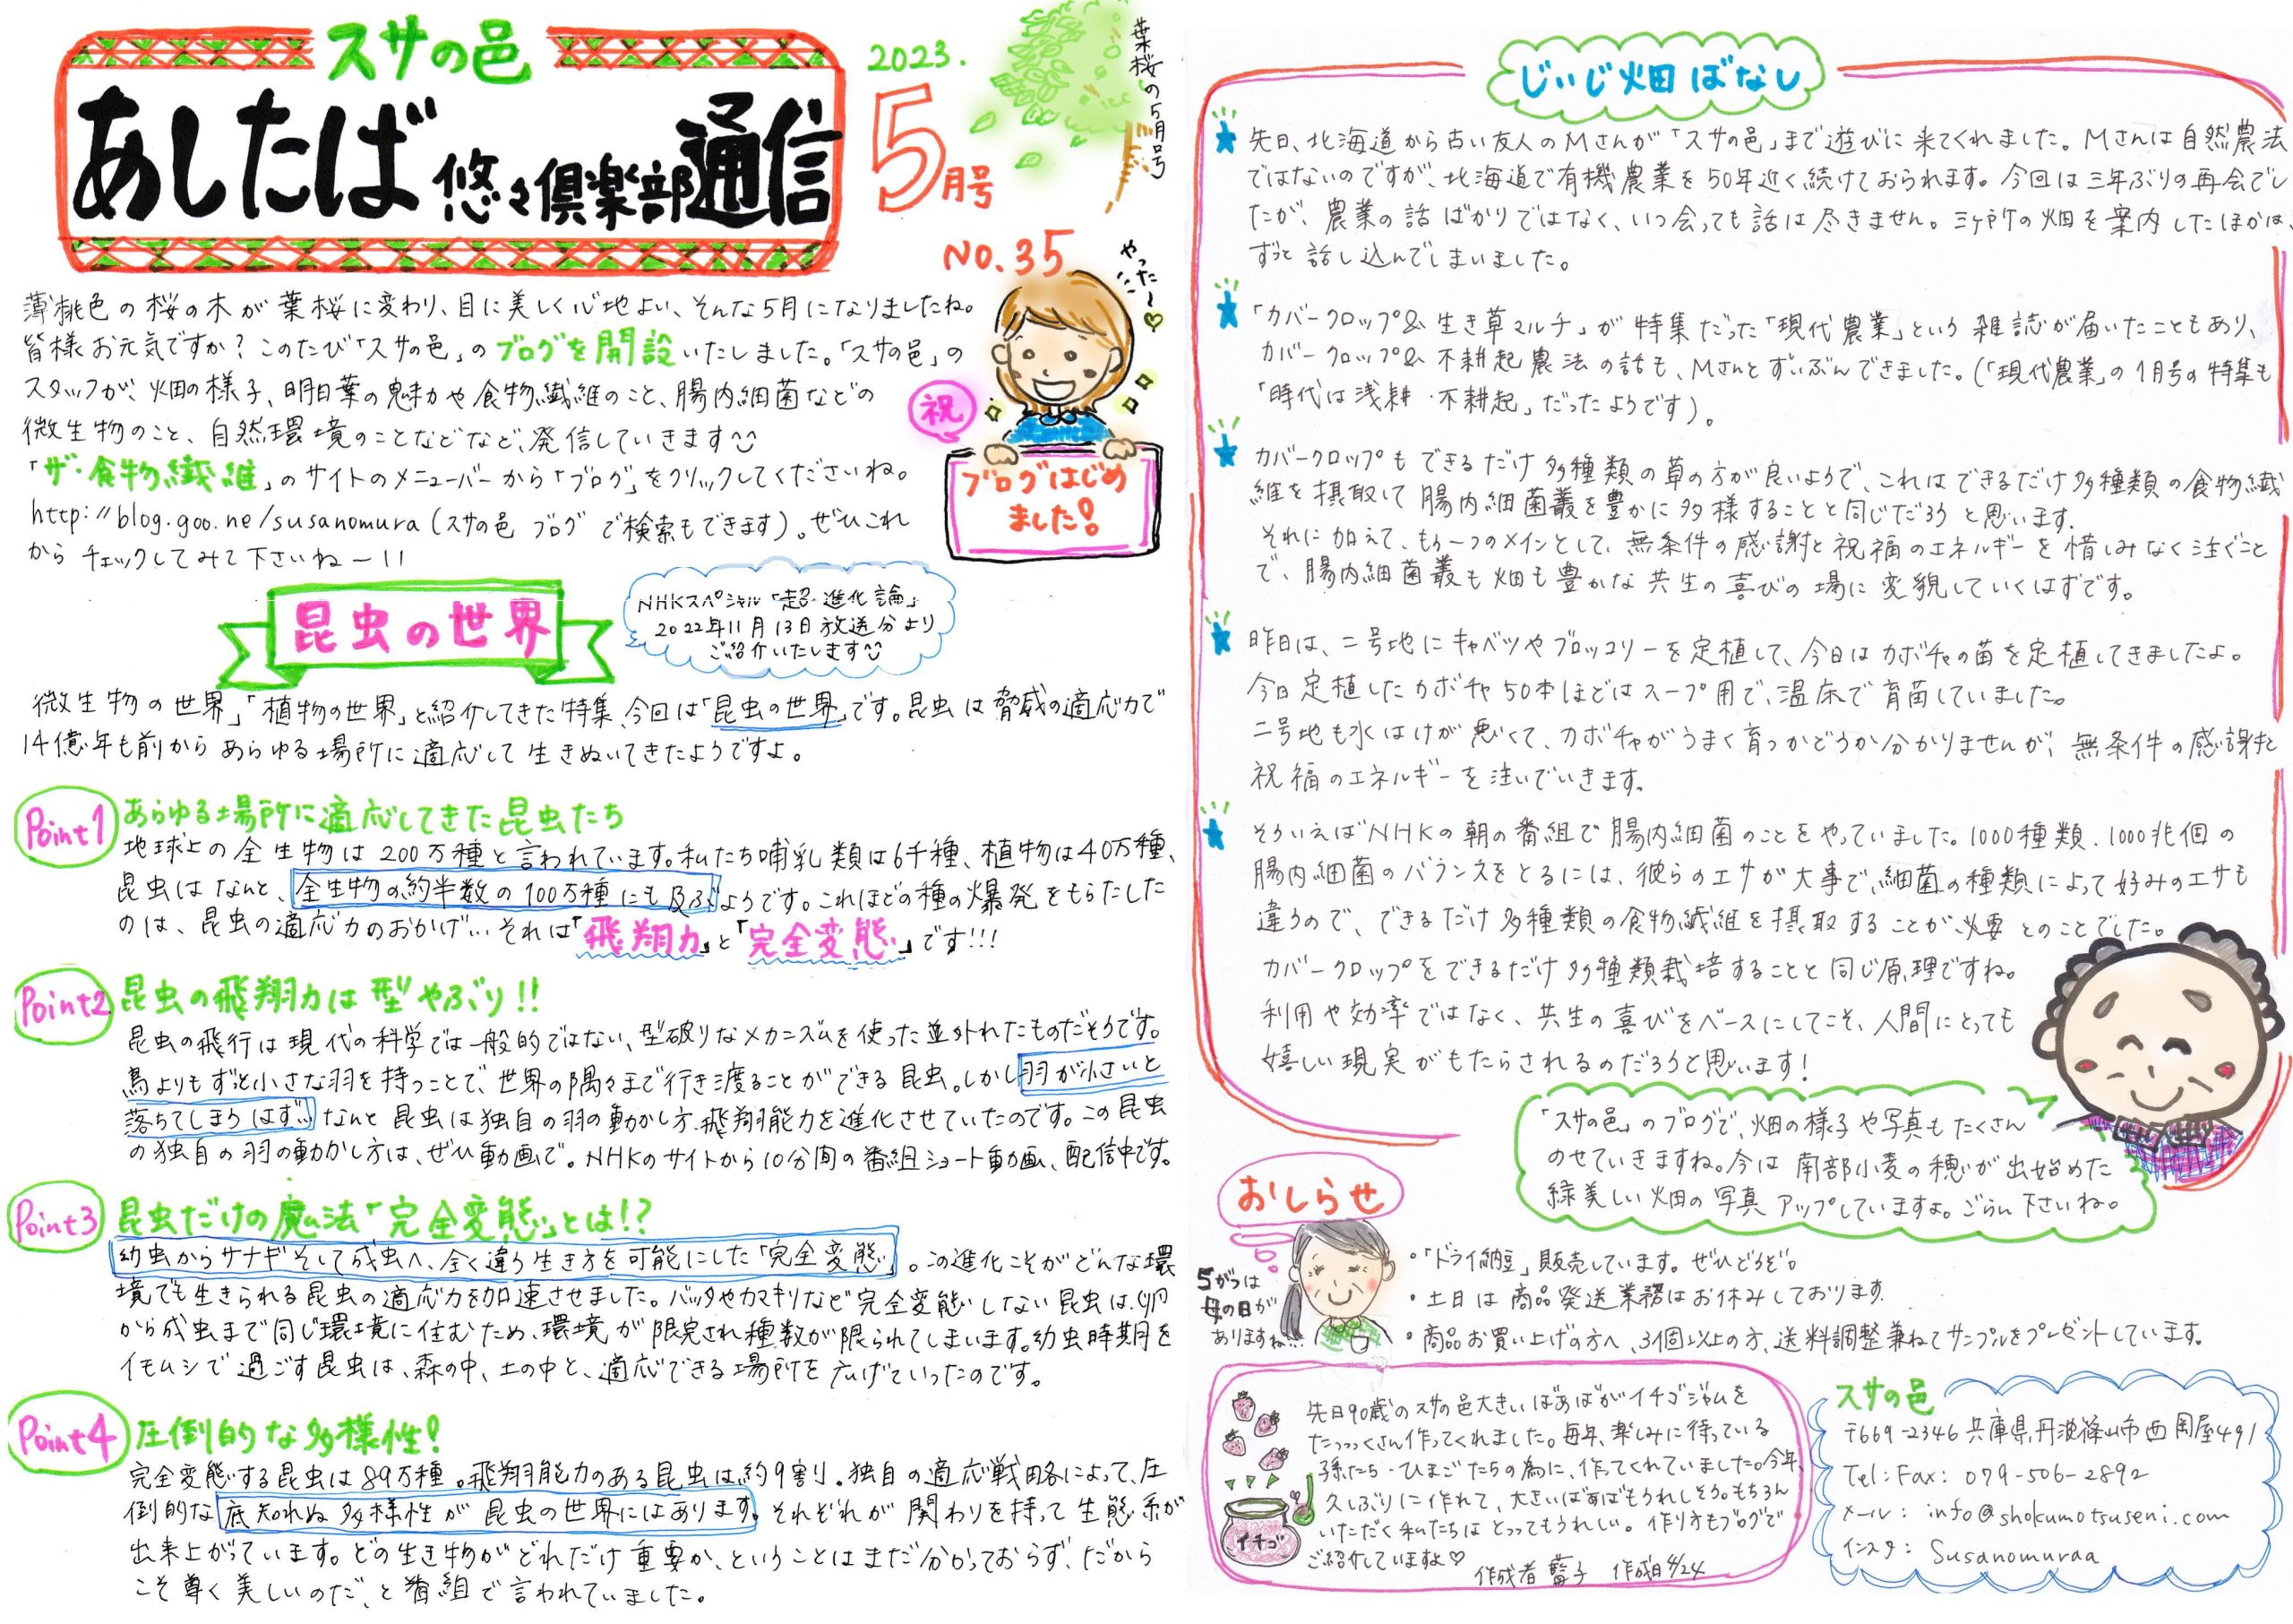 スサの邑
あしたば悠々倶楽部通信
2023.
5月号
葉桜の5月号
NO.35
やった〜♡
祝
ブログはじめ
ました!
薄桃色の桜の木が葉桜に変わり、目に美しく心地よい、そんな5月になりましたね。
皆様お元気ですか?このたび「スサの邑」のブログを開設いたしました。「スサの邑」の
スタッフが、畑の様子、明日葉の魅力や食物繊維のこと、腸内細菌などの
微生物のこと、自然環境のことなどなど、発信していきます
「ザ・食物繊維」のサイトのメニューバーから「ブログ」をクリックしてくださいね。
http://blog.goo.ne/susanomura(スサの邑 ブログ で検索もできます)。ぜひこれ
から チェックしてみて下さいねー!!
昆虫の世界
NHKスペシャル「超・進化論」
2022年11月13日放送分より
ご紹介いたします
微生物の世界」「植物の世界」と紹介してきた特集、今回は「昆虫の世界」です。昆虫は脅威の適応力で
14億年も前からあらゆる場所に適応して生きぬいてきたようですよ。
Point1 あらゆる場所に適応してきた昆虫たち
地球上の全生物は200万種と言われています。私たち哺乳類は6千種、植物は40万種、
昆虫はなんと、全生物の約半数の100万種にも及ぶようです。これほどの種の爆発をもらたした
のは、昆虫の適応力のおかげ…それは「飛翔力」と「完全変態」です!!!
Point2 昆虫の飛翔力は型やぶり!!
昆虫の飛行は現代の科学では一般的ではない、型破りなメカニズムを使った並外れたものだそうです。
鳥よりもずっと小さな羽を持つことで、世界の隅々まで行き渡ることができる昆虫。しかし羽が小さいと
落ちてしまうはず…なんと昆虫は独自の羽の動かし方、飛翔能力を進化させていたのです。この昆虫
の独自の羽の動かし方は、ぜひ動画で。NHKのサイトから10分間の番組ショート動画、配信中です。
Point3 昆虫だけの魔法「完全変態」とは!?
幼虫からサナギそして成虫へ、全く違う生き方を可能にした「完全変態」。この進化こそがどんな環
境でも生きられる昆虫の適応力を加速させました。バッタやカマキリなど完全変態しない昆虫は、卵
から成虫まで同じ環境に住むため、環境が限定され種数が限られてしまいます。幼虫時期を
イモムシで過ごす昆虫は、森の中、土の中と、適応できる場所を広げていったのです。
Point4 圧倒的な多様性!
完全変態する昆虫は89万種。飛翔能力のある昆虫は、約9割。独自の適応戦略によって、圧
倒的な底知れぬ多様性が昆虫の世界にはあります。それぞれが関わりを持って生態系が
出来上がっています。どの生き物がどれだけ重要か、ということはまだ分かっておらず、だから
こそ尊く美しいのだ、と番組で言われていました。
じぃじ畑ばなし
★ 先日、北海道から古い友人のMさんが「スサの邑」まで遊びに来てくれました。Mさんは自然農法
ではないのですが、北海道で有機農業を50年近く続けておられます。今回は三年ぶりの再会でし
たが、農業の話ばかりではなく、いつ会っても話は尽きません。三ヶ所の畑を案内したほかは、
ずっと話し込んでしまいました。
★ 「カバークロップ&生き草マルチ」が特集だった「現代農業」という雑誌が届いたこともあり、
カバークロップ&不耕起農法の話も、Mさんとずいぶんできました。(「現代農業」の1月号の特集も
「時代は浅耕・不耕起」だったようです)。
★ カバークロップもできるだけ多種類の草の方が良いようで、これはできるだけ多種類の食物繊
維を摂取して腸内細菌叢を豊かに多様することと同じだろうと思います。
それに加えて、もう一つのメインとして、無条件の感謝と祝福のエネルギーを惜しみなく注ぐこと
で、腸内細菌叢も畑も豊かな共生の喜びの場に変貌していくはずです。
★ 昨日は、二号地にキャベツやブロッコリーを定植して、今日はカボチャの苗を定植してきましたよ。
今日定植したカボチャ50本ほどはスープ用で、温床で育苗していました。
二号地も水はけが悪くて、カボチャがうまく育つかどうか分かりませんが、無条件の感謝と
祝福のエネルギーを注いでいきます。
★ そういえばNHKの朝の番組で腸内細菌のことをやっていました。1000種類、1000兆個の
腸内細菌のバランスをとるには、彼らのエサが大事で、細菌の種類によって好みのエサも
違うので、できるだけ多種類の食物繊維を摂取することが必要とのことでした。
カバークロップをできるだけ多種類栽培することと同じ原理ですね。
利用や効率ではなく、共生の喜びをベースにしてこそ、人間にとっても
嬉しい現実がもたらされるのだろうと思います!
「スサの邑」のブログで、畑の様子や写真もたくさん
のせていきますね。今は南部小麦の穂が出始めた
緑美しい畑の写真アップしていますよ。ごらん下さいね。
おしらせ
5がつは
母の日が
ありますね…
・「ドライ納豆」販売しています。ぜひどうぞ。
・土日は商品発送業務はお休みしております。
・商品お買い上げの方へ、3個以上の方、送料調整兼ねてサンプルをプレゼントしています。
先日90歳のスサの邑大きいばあばがイチゴジャムを
たっっっくさん作ってくれました。毎年、楽しみに待っている
孫たち・ひまごたちの為に、作ってくれていました。今年、
久しぶりに作れて、大きいばあばもうれしそう。もちろん
いただく私たちはとってもうれしい。作り方もブログで
ご紹介していますよ♡
作成者 藍子 作成日4/24
イチゴ
スサの邑
〒669-2346 兵庫県丹波篠山市西岡屋491
Tel:Fax: 079-506-2892
メール: info@shokumotsuseni.com
インスタ: Susanomuraa